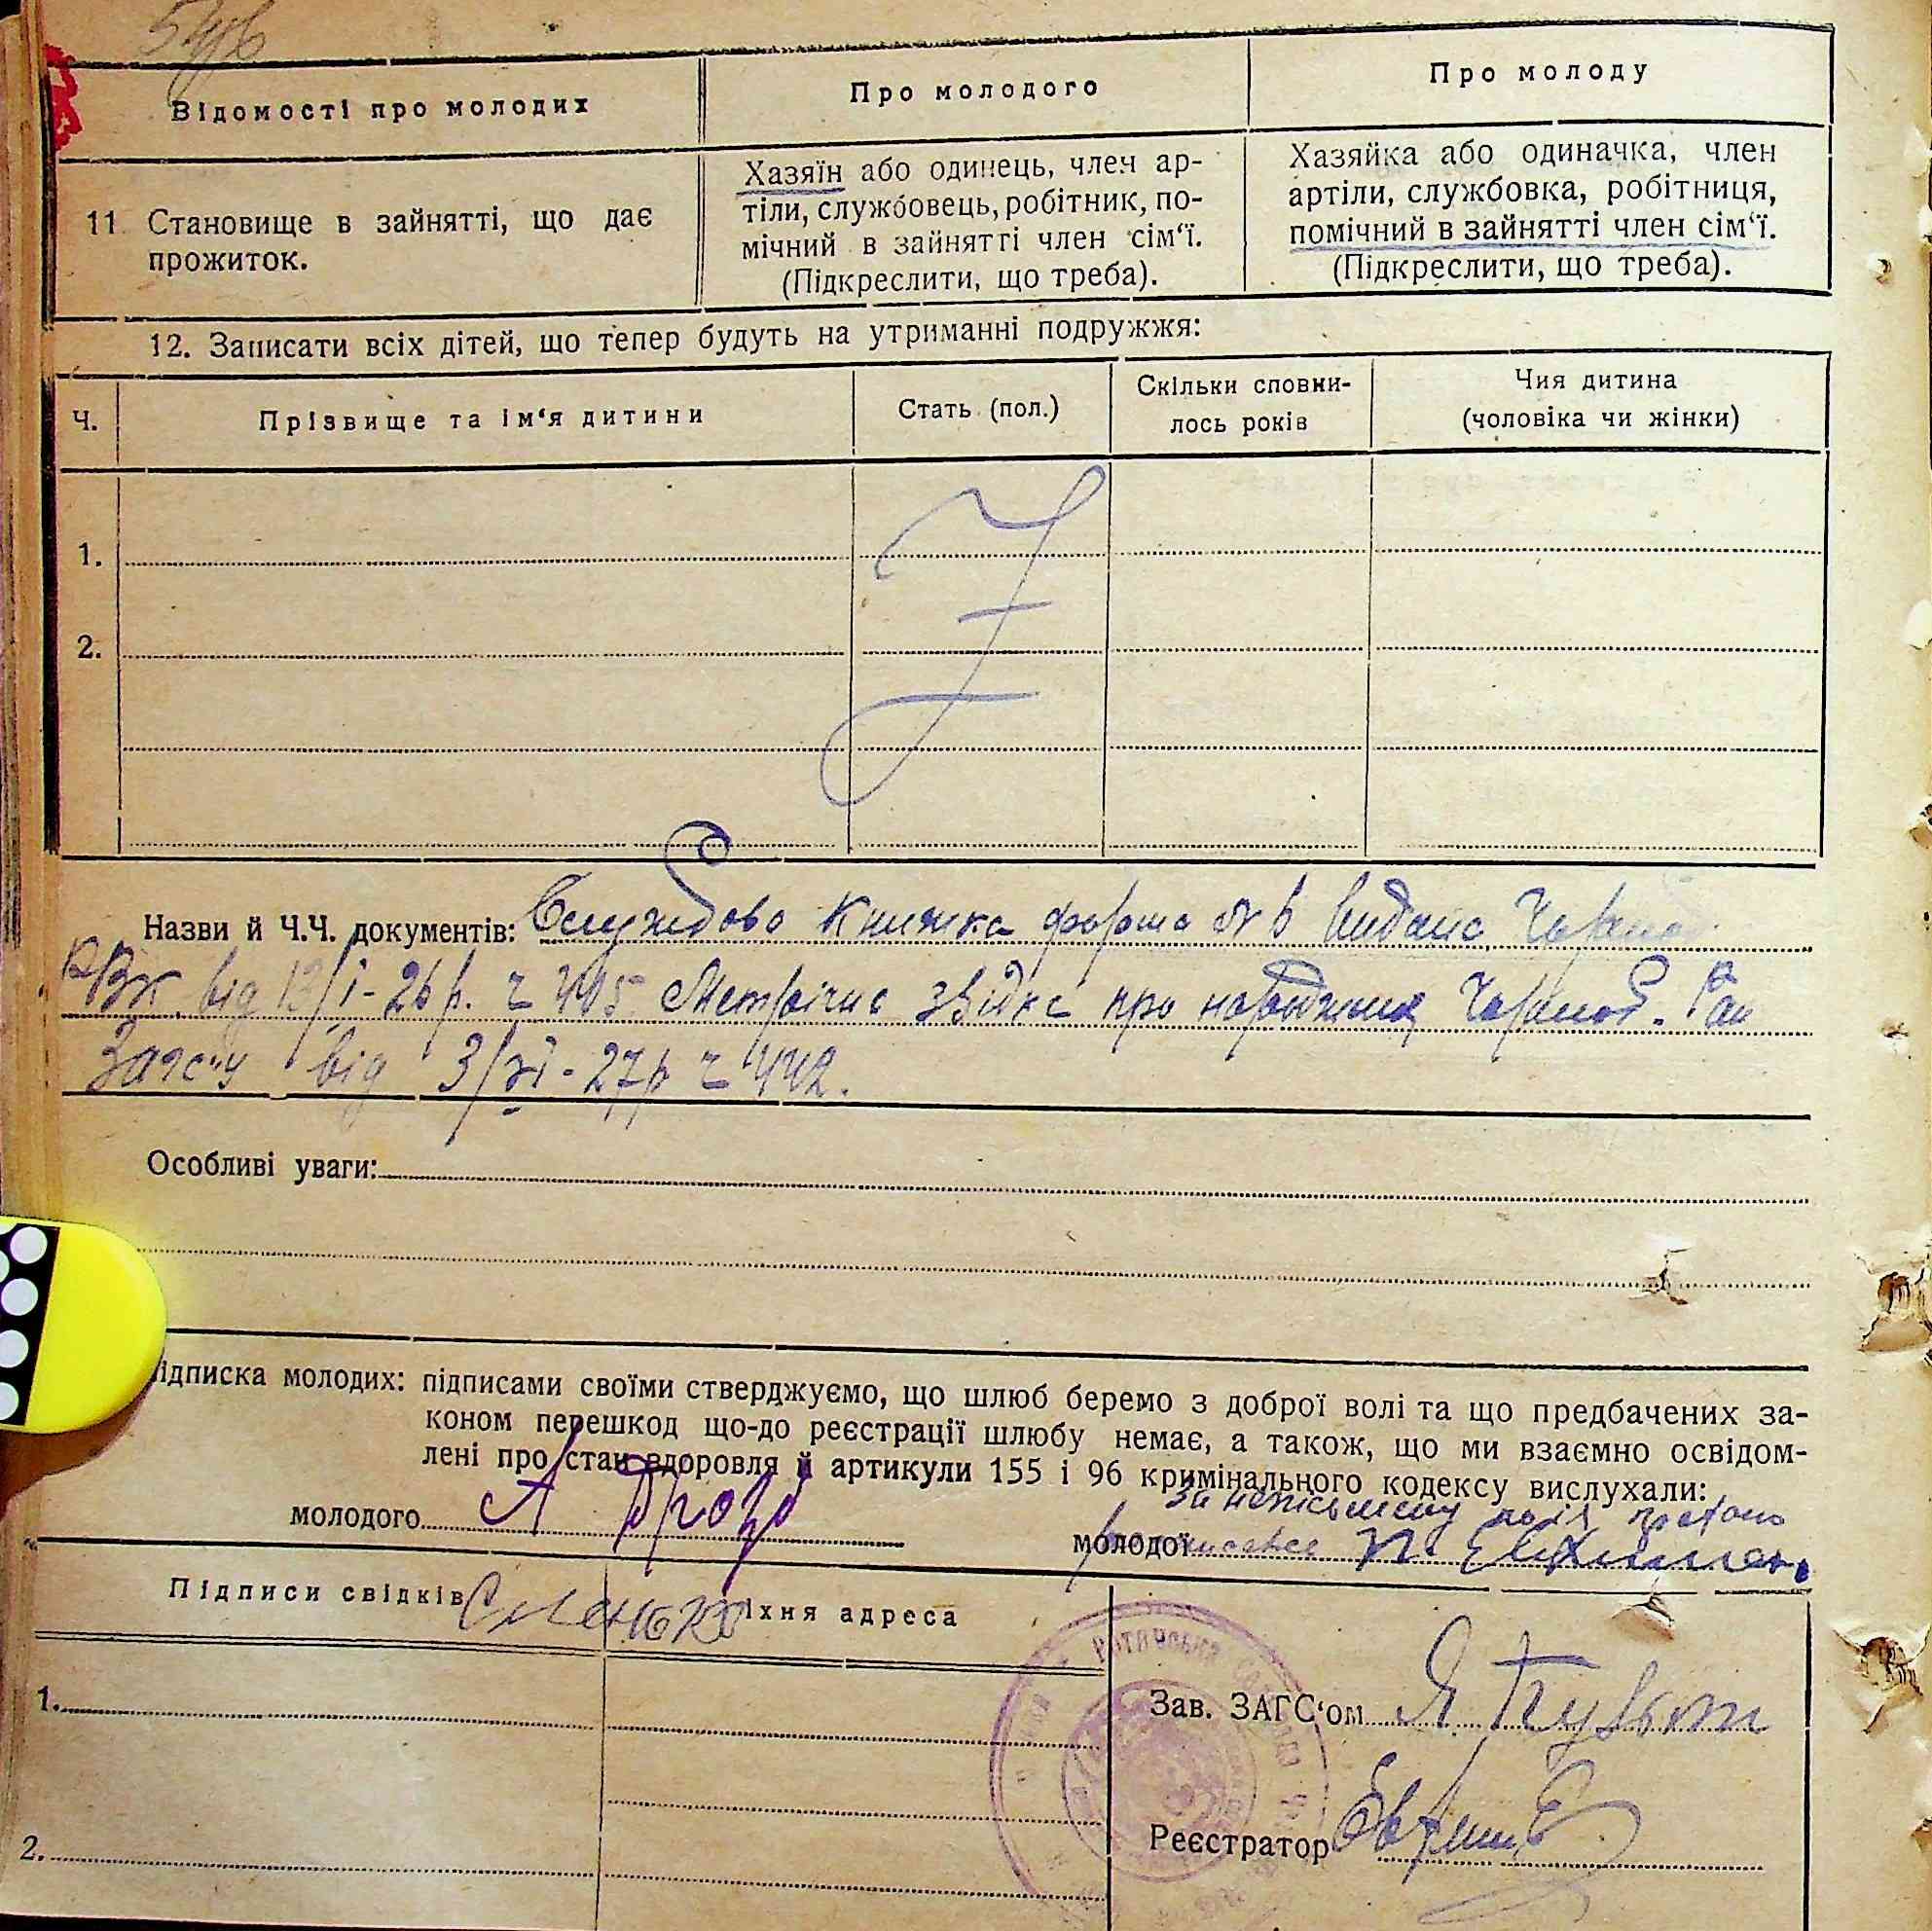 54/6
Відомості про молодих
Про молодого
Про молоду
11 Становище в зайнятті, що дає
прожиток.
Хазяїн або одинець, член ар-
тіли, службовець, робітник, по-
мічний в зайнятті член сім'ї.
(Підкреслити, що треба).
Хазяйка або одиначка, член
артіли, службовка, робітниця,
помічний в зайнятті член сім'ї.
(Підкреслити, що треба).
12. Записати всіх дітей, що тепер будуть на утриманні подружжя:
Ч.
Прізвище та ім'я дитини
Стать (пол.)
Скільки сповни-
лось років
Чия дитина
(чоловіка чи жінки)
1.
2.
Назви й Ч.Ч. документів: Службова книжка форма № 6 видана
РВК від 13/I-26 р. ч 445 Метрічна звідка про народження
Загсу від 3/XI-27р ч 442.
Особливі уваги:
ідписка молодих: підписами своїми стверджуємо, що шлюб беремо з доброї волі та що предбачених за-
коном перешкод що-до реєстрації шлюбу немає, а також, що ми взаємно освідом-
лені про стан здоровля й артикули 155 і 96 кримінального кодексу вислухали:
молодого А Дрозд
молодої
Підписи свідків
їхня адреса
1.
2.
Зав. ЗАГС'ом
Реєстратор